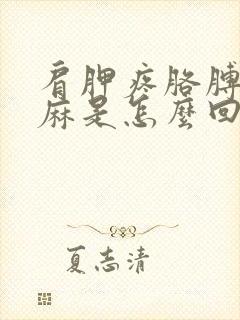 肩胛疼胳膊
麻是怎麼回
夏志清